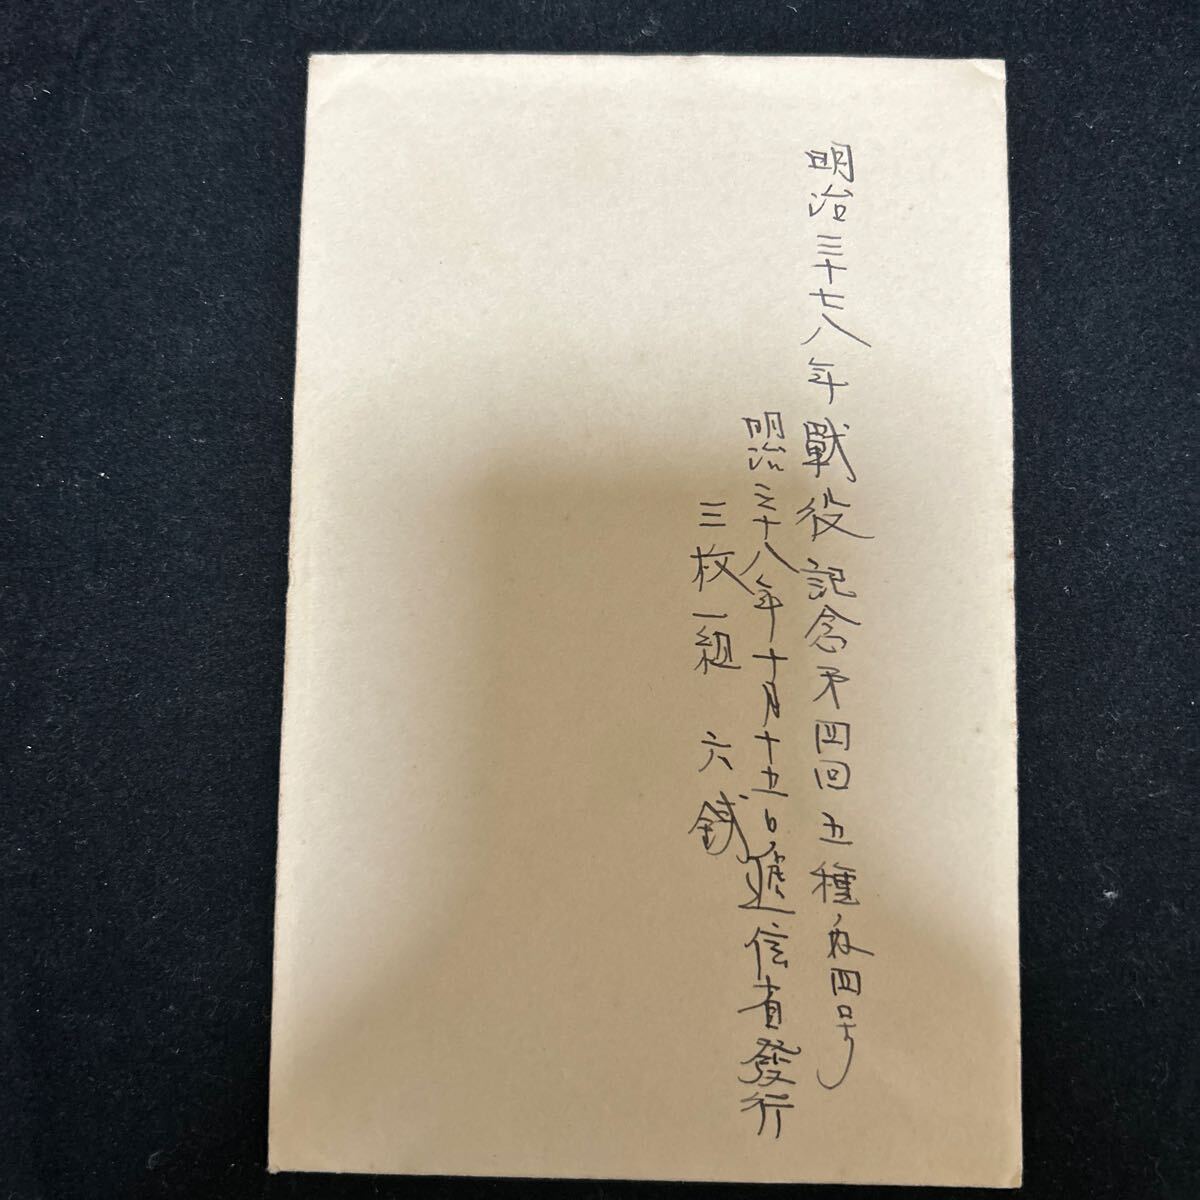 明治三十七八年戰役記念才四回五種ノ内四号
明治三十八年十月十五日逓信省發行
三枚一組　六銭